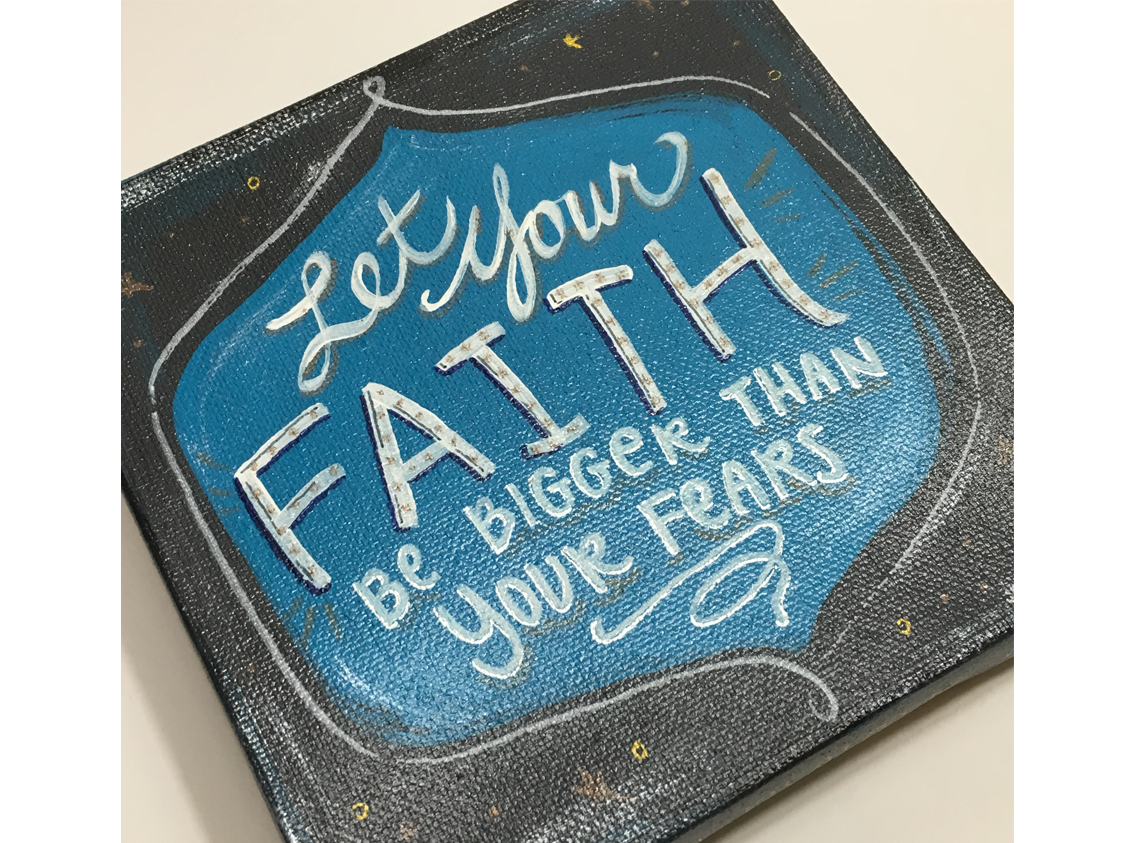 Let your
FAITH
Be BIGGeR THAN
YOUR FeARS